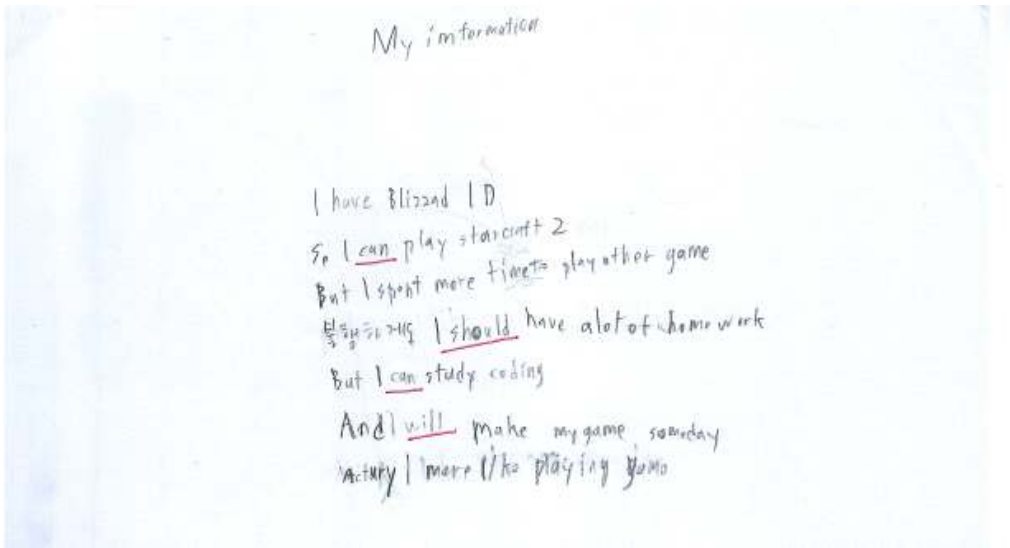 My imformation
I have Blizzad ID
So I can play starcraft 2
But I spent more time to play other game
불행하게도 I should have alot of home work
But I can study coding
And I will make my game someday
Actury I more like playing game